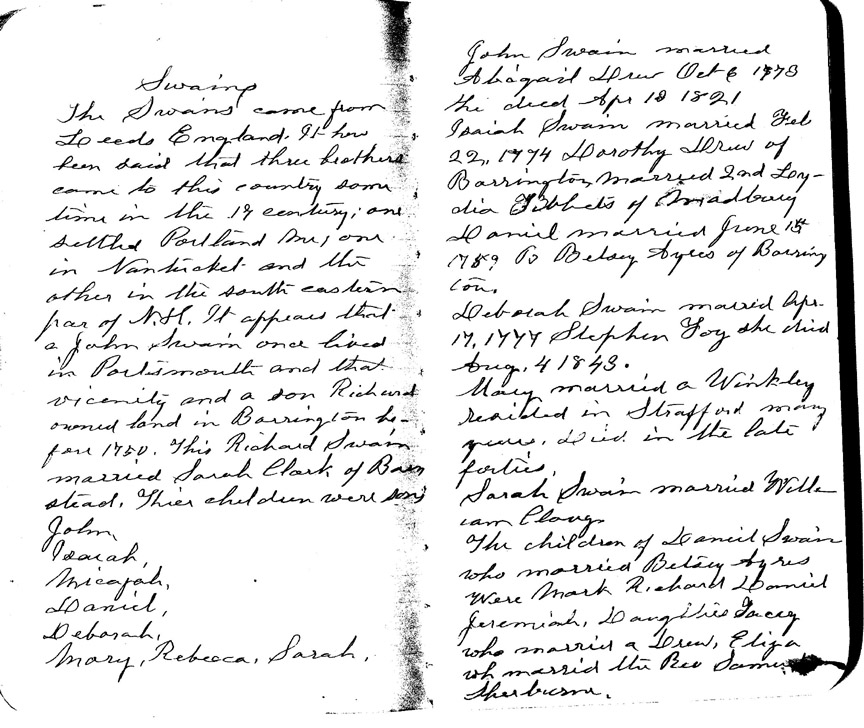 Swains
The Swains came from
Leeds England. It has
been said that three brothers
came to this country some
time in the 17 century; one
settled Portland Me; one
in Nantucket and the
other in the south eastern
par of N.H. It appears that
a John Swain once lived
in Portsmouth and that
vicenity and a son Richard
owned land in Barrington be-
fore 1750. This Richard Swain
married Sarah Clark of Barn
stead. Thier children were sons
John,
Isaiah,
Micajah,
Daniel,
Deborah,
Mary, Rebecca, Sarah,
John Swain married
Abigail Drew Oct 6 1773
he died Apr 18 1821
Isaiah Swain married Feb
22, 1774 Dorothy Drew of
Barrington, married 2nd Loy-
dia Tibbets of Madbury
Daniel married June 15
1789 To Betsey Ayres of Barring
ton.
Deborah Swain married Apr.
17, 1777 Stephen Foy she died
Aug. 4 1843.
Mary married a Winkley
resided in Strafford many
years. Died in the late
forties.
Sarah Swain married Will-
iam
The children of Daniel Swain
who married Betsey Ayres
Were Mark Richard Daniel
Jeremiah,
who married a Drew, Eliza
wh married the Rev Samu
Sherburne.